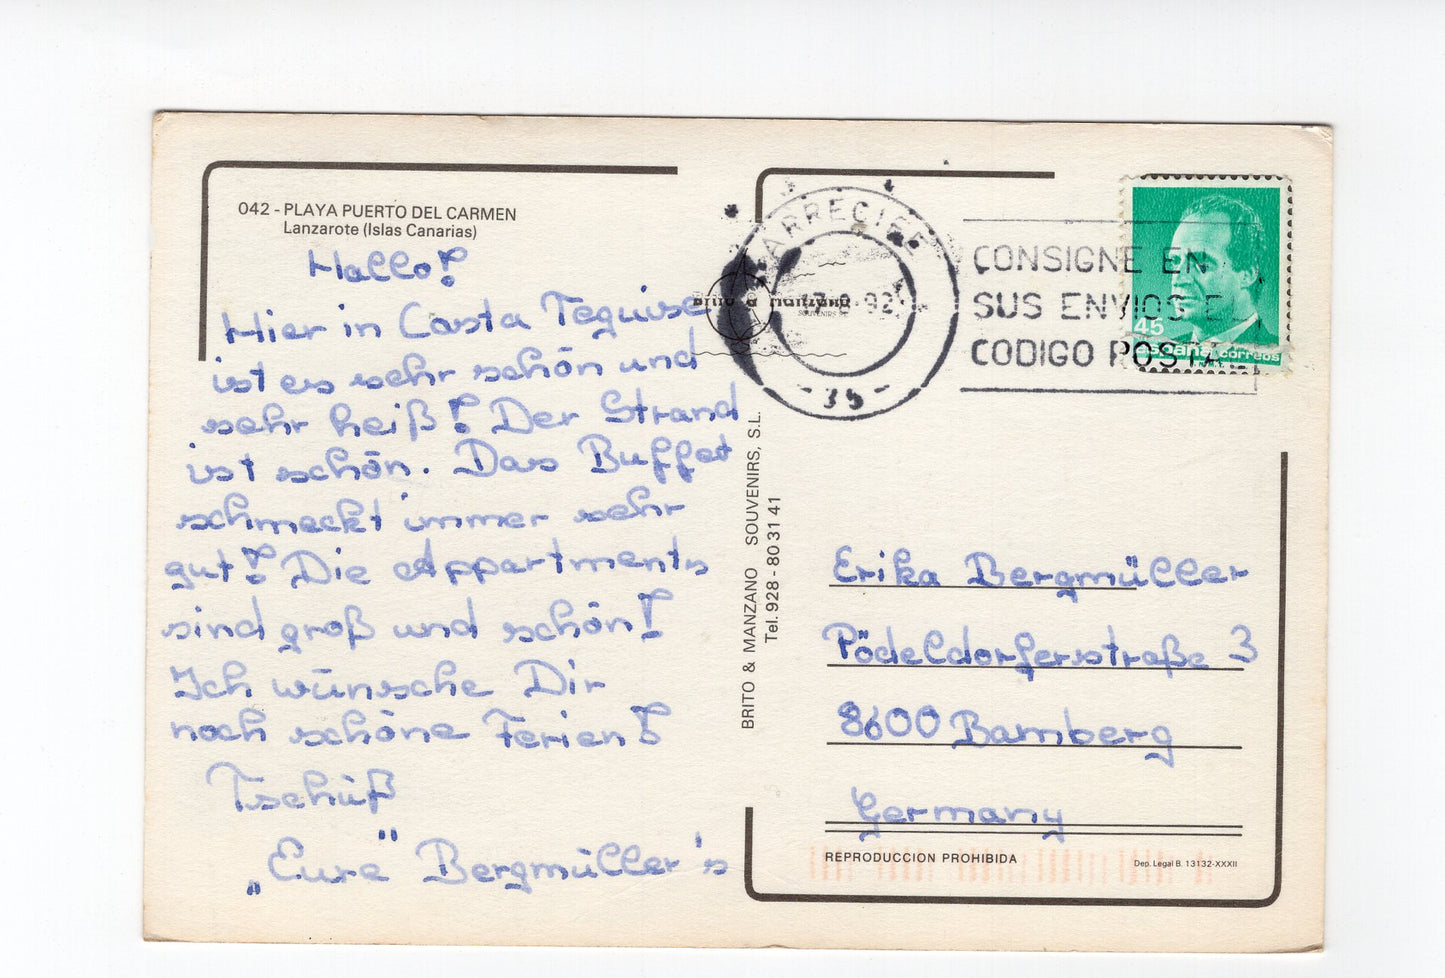 042 - PLAYA PUERTO DEL CARMEN
Lanzarote (Islas Canarias)
Hallo!
Hier in Costa Teguise
ist es sehr schön und
sehr heiß! Der Strand
ist schön. Das Buffet
schmeckt immer sehr
gut! Die Appartments
sind groß und schön!
Ich wünsche Dir
noch schöne Ferien!
Tschüß
„Eure" Bergmüller's
BRITO & MANZANO SOUVENIRS, S.L.
Tel. 928 - 80 31 41
ARRECIFE
92
- 35 -
CONSIGNE EN
SUS ENVIOS EL
CODIGO POSTA
45
españa correos
Erika Bergmüller
Pödeldorferstraße 3
8600 Bamberg
Germany
REPRODUCCION PROHIBIDA
Dep. Legal B. 13132-XXXII